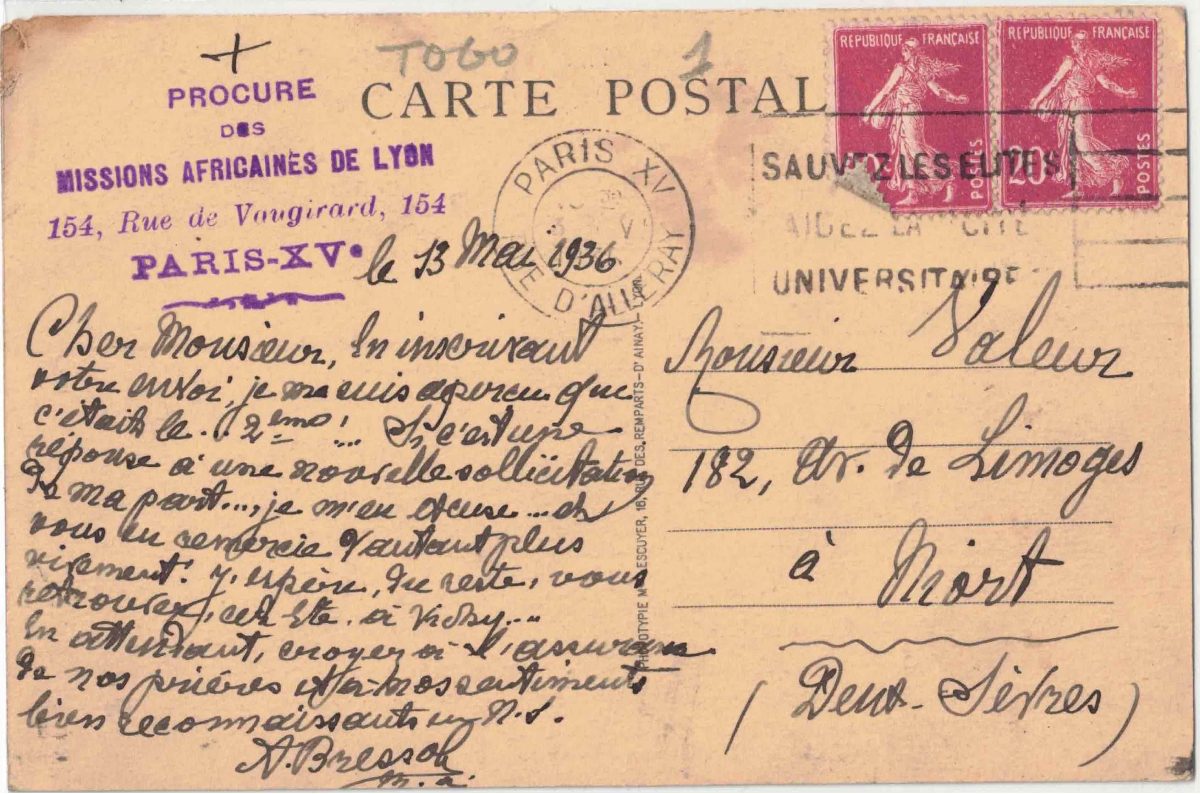 TOGO
1
CARTE POSTAL
PROCURE
DES
MISSIONS AFRICAINES DE LYON
154, Rue de Vaugirard, 154
PARIS-XVe
REPUBLIQUE FRANÇAISE
POSTES
REPUBLIQUE FRANÇAISE
20
POSTES
PARIS XV
RUE D'ALLERAY
SAUVEZ LES ELITES
AIDEZ LA CITE
UNIVERSITAIRE
le 13 Mai 1936
Cher Monsieur, En inscrivant
votre envoi, je me suis aperçu que
c'était le .. 2ème! ... Si c'est une
réponse à une nouvelle sollicitation
de ma part..., je m'en excuse ... et
vous en remercie d'autant plus
vivement! J'espère, du reste, vous
retrouver, cet Eté, à Vichy...
En attendant, croyez à l'assurance
de nos prières et à nos sentiments
bien reconnaissants en N.S.
A. Bressol
m.a.
Monsieur Valeur
182, Av. de Limoges
à Niort
(Deux-Sèvres)
PHOTOTYPIE M. LESCUYER, 16, RUE DES REMPARTS-D'AINAY.- LYON.